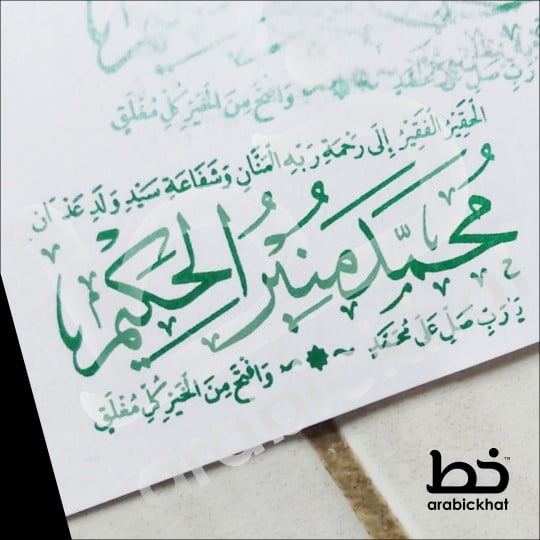 يَا رَبِّ صَلِّ عَلَى مُحَمَّد
وَافْتَحْ مِنَ الْخَيْرِ كُلَّ مُغْلَقٍ
الْحَقِيْرُ الْفَقِيْرُ إِلَى رَحْمَةِ رَبِّهِ الْمَنَّانِ وَشَفَاعَةِ سَيِّدِ وَلَدِ عَدْنَان
مُحَمَّد مُنِيْرُ الْحَكِيْم
يَا رَبِّ صَلِّ عَلَى مُحَمَّد ~ ✸ ~ وَافْتَحْ مِنَ الْخَيْرِ كُلَّ مُغْلَقٍ
خط™
arabickhat